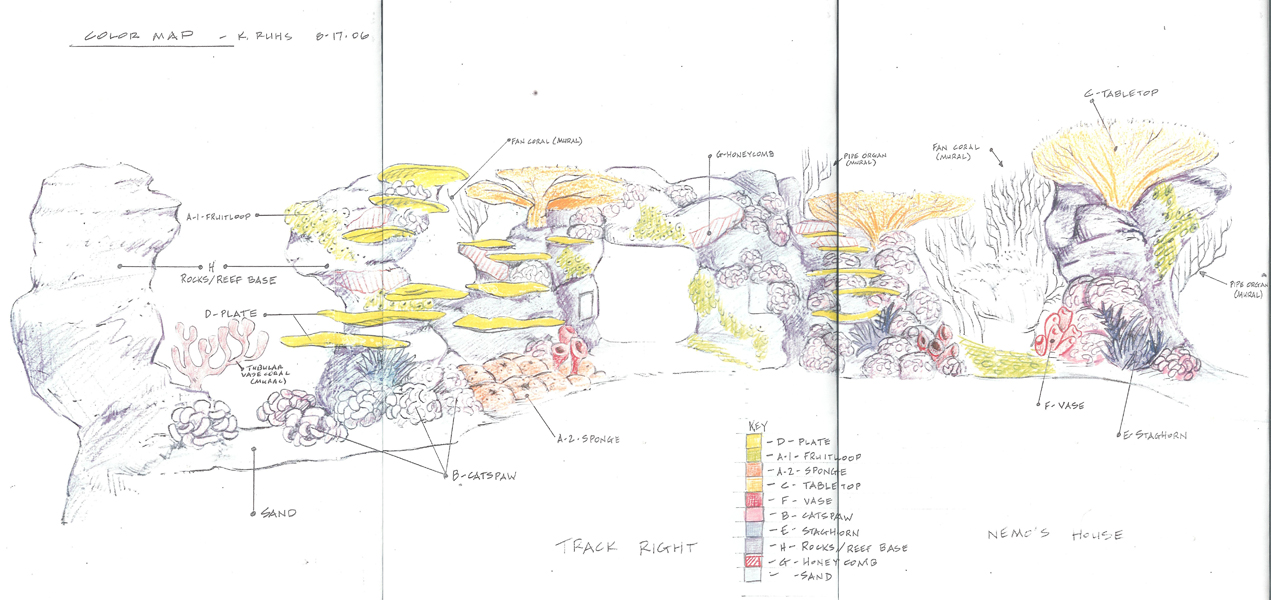 COLOR MAP - K. RUHS 8-17-06
C-TABLETOP
FAN CORAL (MURAL)
G-HONEYCOMB
PIPE ORGAN
(MURAL)
FAN CORAL
(MURAL)
A-1-FRUITLOOP
H
ROCKS/REEF BASE
PIPE ORGAN
(MURAL)
D-PLATE
TUBULAR
VASE CORAL
(MURAL)
F-VASE
A-2-SPONGE
E-STAGHORN
B-CATSPAW
SAND
KEY
- D - PLATE
- A-1 - FRUITLOOP
- A-2 - SPONGE
- C - TABLETOP
- F - VASE
- B - CATSPAW
- E - STAGHORN
- H - ROCKS/REEF BASE
- G - HONEYCOMB
- - SAND
TRACK RIGHT
NEMO'S HOUSE